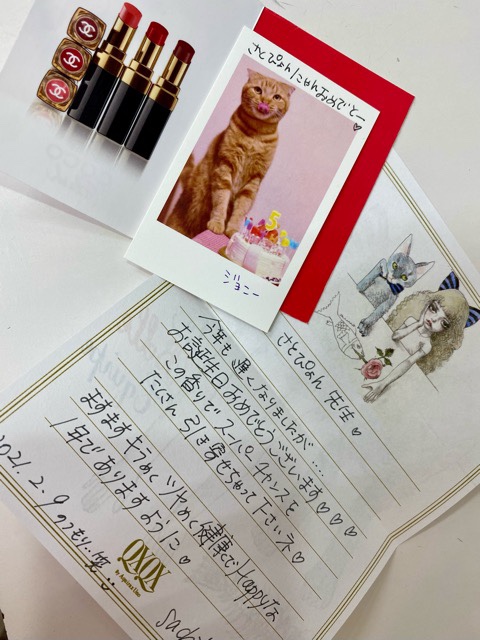 さとぴょんにゃんおめでとー♡
ジョニー
さとぴょん先生♡
今年も遅くなりましたが....
お誕生日おめでとうございます♡♡♡
この香りでスーパーチャンスを
たくさん引き寄せちゃって下さいネ♡
ますますキラめくツヤめく健康でHappyな
1年でありますように♡
2021.2.9
つもり..笑